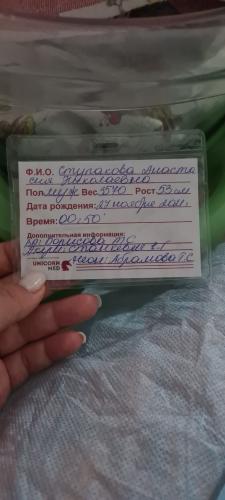 Ф.И.О. Ступакова Анаста
сия Николаевна
Пол муж Вес. 3570 Рост. 53 см
Дата рождения: 27 ноября 2021г.
Время: 00:50
Дополнительная информация:
вр: Борисова Т.С.
Абрамова Т.С
UNICORN
MED